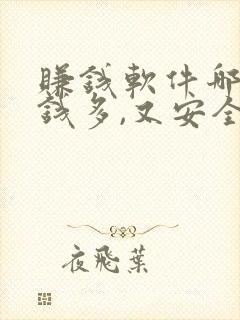 賺錢軟件哪
錢多,又安全
夜飛葉